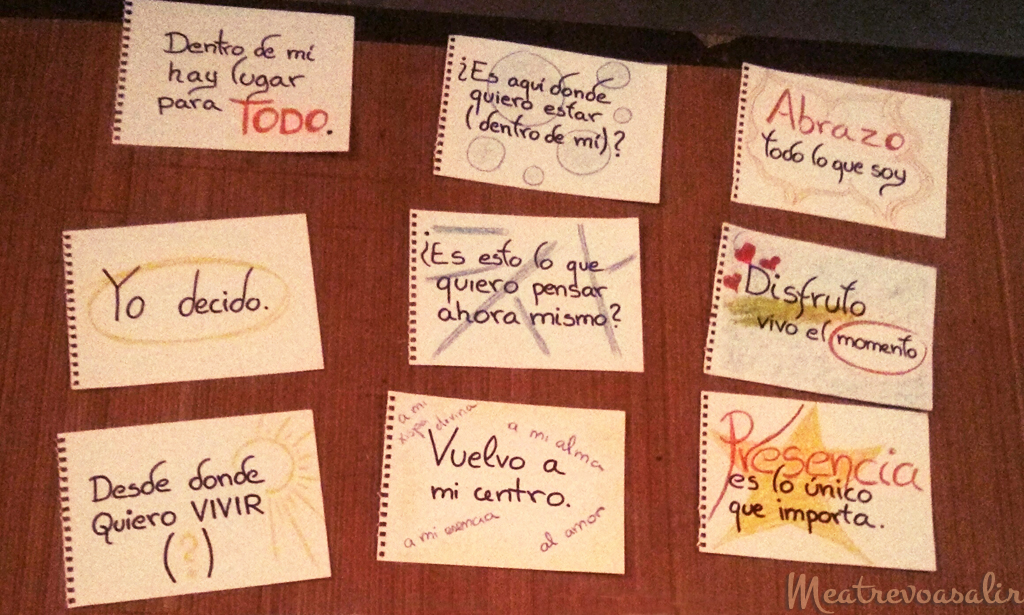 Dentro de mí
hay lugar
para TODO.
¿Es aquí donde
quiero estar
(dentro de mí)?
Abrazo
todo lo que soy
Yo decido.
¿Es esto lo que
quiero pensar
ahora mismo?
Disfruto
vivo el momento
Desde donde
Quiero VIVIR
(?)
a mi
xispa divina
a mi alma
Vuelvo a
mi centro.
a mi esencia
al amor
Presencia
es lo único
que importa.
Meatrevoasalir